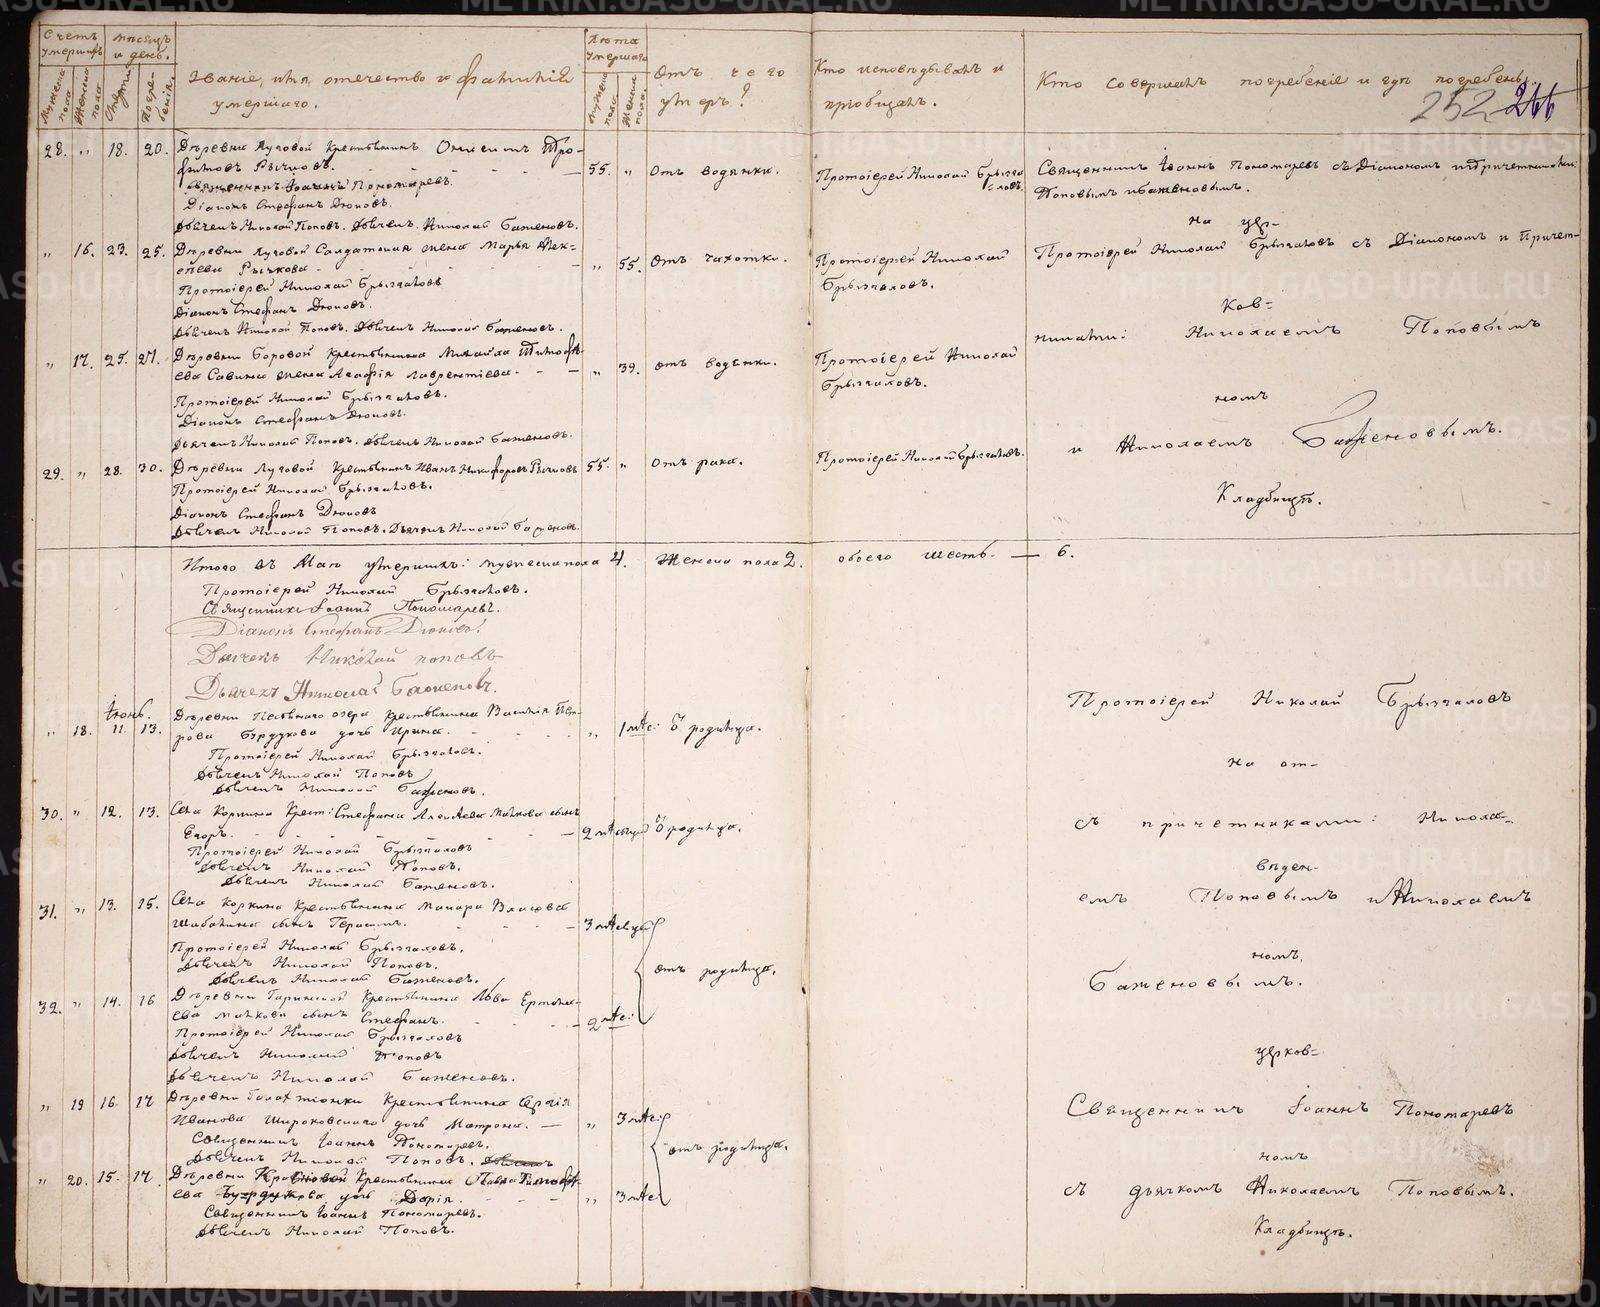 Счетъ умершихъ
Мужеска пола
Женска пола
Мѣсяцъ и день.
Смерти
Погребенія.
Званіе, имя, отечество и фамилія
умершаго.
Лѣта умершаго
Мужеска пола.
Женска пола.
Отъ чего
умеръ?
Кто исповѣдывалъ и
пріобщалъ.
Кто совершалъ погребеніе и гдѣ погребенъ.
252
28. " 18. 20. Деревни Луговой крестьянинъ Онисимъ Тро-
фимовъ Рычковъ. 55. " Отъ водянки. Протоіерей Николай Брызгаловъ. Священникъ Іоаннъ Пономаревъ съ Діакономъ и Причетниками:
Поповымъ и Баженовымъ.
Священникъ Іоаннъ Пономаревъ.
Діаконъ Стефанъ
Дьячекъ Николай Поповъ. Дьячекъ Николай Баженовъ.
На цер-
" 16. 23. 25. Деревни Луговой Солдатская жена Марья Алек-
сѣева Рычкова " 55. Отъ чахотки. Протоіерей Николай
Брызгаловъ. Протоіерей Николай Брызгаловъ съ Діакономъ и Причет-
Протоіерей Николай Брызгаловъ
Діаконъ Стефанъ
Дьячекъ Николай Поповъ. Дьячекъ Николай Баженовъ.
ков-
никами: Николаемъ Поповымъ
" 17. 25. 27. Деревни Боровой Крестьянина Михаила Тимофѣ-
ева Савина жена Агафія Лаврентіева. " 39. отъ водянки. Протоіерей Николай
Брызгаловъ.
Протоіерей Николай Брызгаловъ.
Діаконъ Стефанъ
Дьячекъ Николай Поповъ. Дьячекъ Николай Баженовъ.
номъ
и Николаемъ Баженовымъ.
29. " 28. 30. Деревни Луговой Крестьянинъ Иванъ Никифоровъ Рычковъ 55. " Отъ рака. Протоіерей Николай Брызгаловъ.
Протоіерей Николай Брызгаловъ.
Діаконъ Стефанъ
Дьячекъ Николай Поповъ. Дьячекъ Николай Баженовъ.
Кладбищѣ.
Итого въ Маѣ умершихъ: мужеска пола 4. Женска пола 2. обоего шесть. — 6.
Протоіерей Николай Брызгаловъ.
Священникъ Іоаннъ Пономаревъ.
Діаконъ Стефанъ
Дьячекъ Николай Поповъ
Дьячекъ Николай Баженовъ.
Іюнь.
" 18. 11. 13. Деревни озера крестьянина Василія Пет-
рова Бурдукова дочь Ирина. " 1 мѣс: Ѿ родимца.
Протоіерей Николай Брызгаловъ.
Дьячекъ Николай Поповъ
Дьячекъ Николай Баженовъ.
Протоіерей Николай Брызгаловъ
На от-
30. " 12. 13. Села Коркина Крест: Стефана сынъ
Егоръ. 2 мѣсяца Ѿ родимца.
Протоіерей Николай Брызгаловъ
Дьячекъ Николай Поповъ.
Дьячекъ Николай Баженовъ.
съ причетниками: Никола-
веден-
31. " 13. 15. Села Коркина Крестьянина Макара Власова
сынъ Герасимъ. 3 мѣсяца
Протоіерей Николай Брызгаловъ.
Дьячекъ Николай Поповъ.
Дьячекъ Николай Баженовъ.
отъ родимца.
емъ Поповымъ и Николаемъ
номъ
Баженовымъ.
32. " 14. 16 Деревни Крестьянина Льва Ермола-
ева сынъ Стефанъ. 2 мѣс:
Протоіерей Николай Брызгаловъ
Дьячекъ Николай Поповъ
Дьячекъ Николай Баженовъ.
церков-
" 19 16. 17 Деревни Крестьянина Сергія
Иванова Широковскаго дочь Матрона. — " 3 мѣс:
Священникъ Іоаннъ Пономаревъ.
Дьячекъ Николай Поповъ.
отъ родимца.
Священникъ Іоаннъ Пономаревъ
номъ
" 20. 15. 17. Деревни Крестьянина Павла Тимофѣ-
ева Бурдукова дочь Дарія. " 3 мѣс
Священникъ Іоаннъ Пономаревъ.
Дьячекъ Николай Поповъ.
съ дьячкомъ Николаемъ Поповымъ.
Кладбищѣ.
METRIKI.GASO-URAL.RU